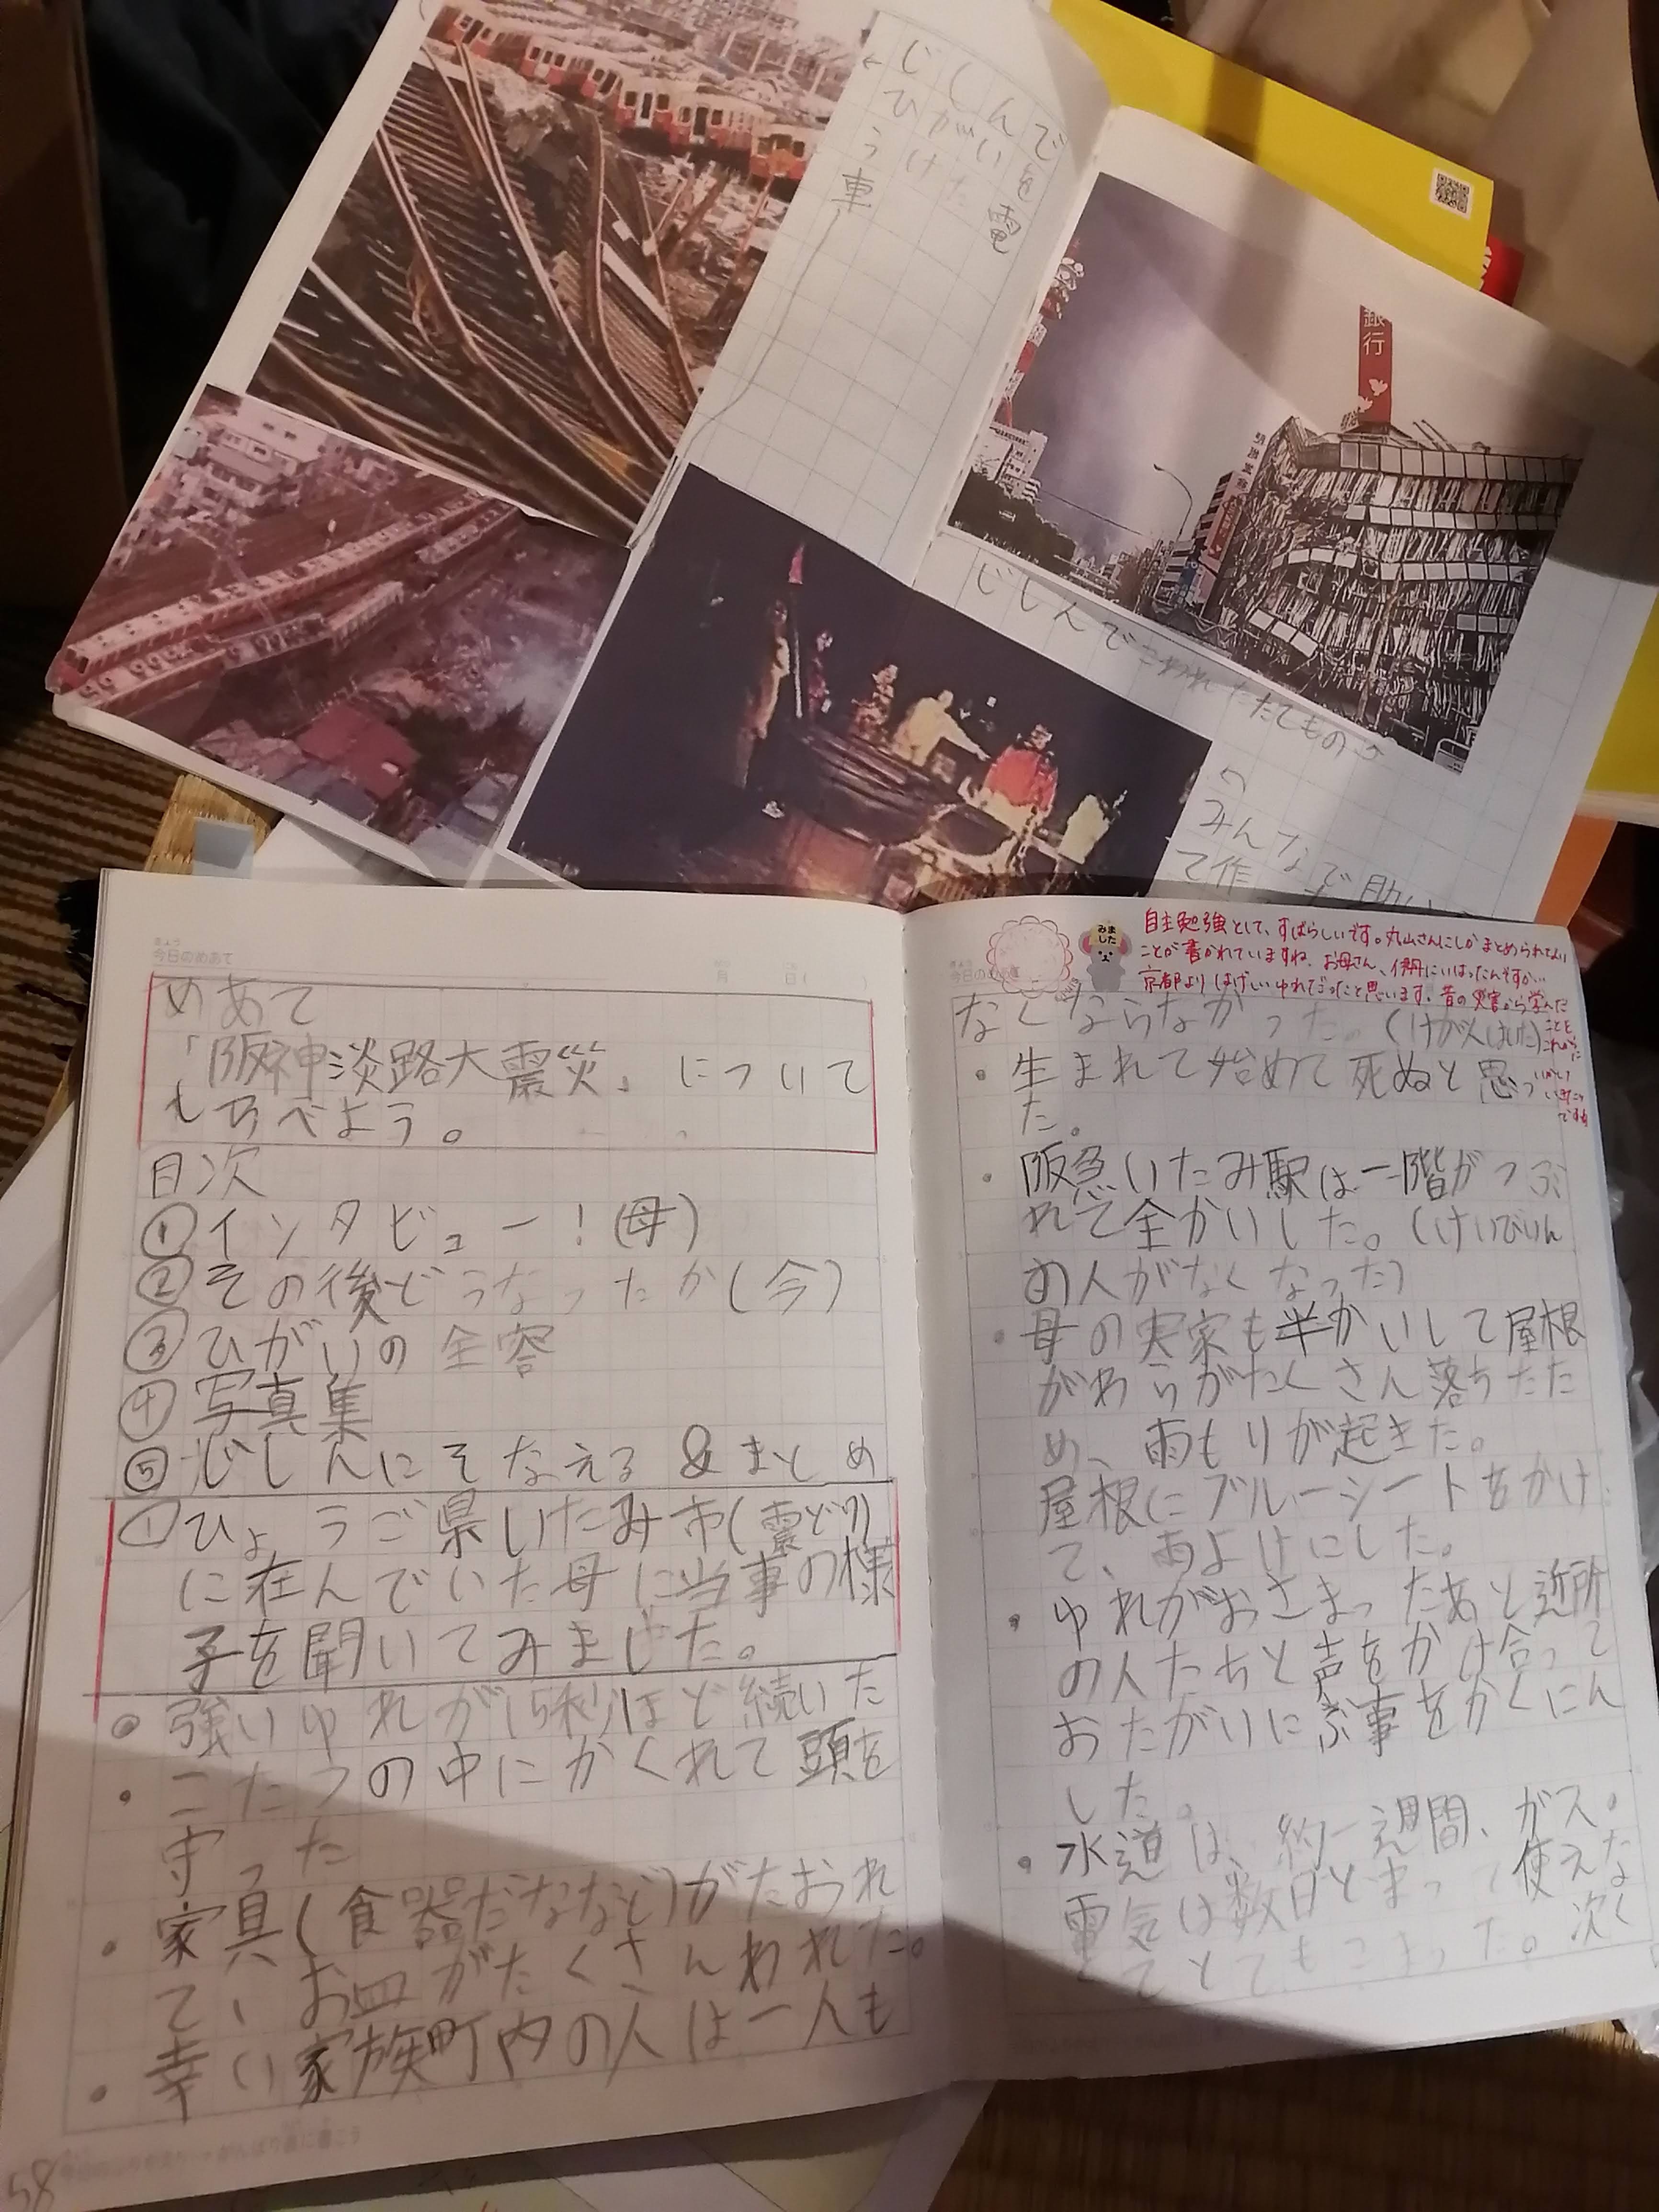 じしんで
ひがいを
うけた電
車
銀行
じしんでこわれたたてもの
みんなで助け
て作
今日のめあて
月 日( )
めあて
「阪神淡路大震災」について
しらべよう。
目次
①インタビュー！(母)
②その後どうなったか(今)
③ひがいの全容
④写真集
⑤じしんにそなえる&まとめ
①ひょうご県いたみ市(震ど7)
に在んでいた母に当事の様
子を聞いてみました。
強いゆれが15秒ほど続いた
・こたつの中にかくれて頭を
守った
・家具(食器だななど)がたおれ
て、お皿がたくさんわれた。
・幸い家族町内の人は一人も
58
みました
自主勉強として、すばらしいです。丸山さんにしかまとめられない
ことが書かれていますね。お母さん、伊丹にいはったんですか…
京都よりはげしいゆれだったと思います。昔の災害から学んだ
ことを
これからに
いかして
いきたい
ですね
今日のめあて
なくならなかった。(けが人はいた)
・生まれて始めて死ぬと思っ
た。
・阪急いたみ駅は一階がつぶ
れて全かいした。(けいびいん
の人がなくなった)
・母の実家も半かいして屋根
がわらがたくさん落ちたた
め、雨もりが起きた。
屋根にブルーシートをかけ
て、雨よけにした。
・ゆれがおさまったあと近所
の人たちと声をかけ合って
おたがいにぶ事をかくにん
した。
・水道は、約一週間、ガス。
電気は数日とまって使えな
くてとてもこまった。次く